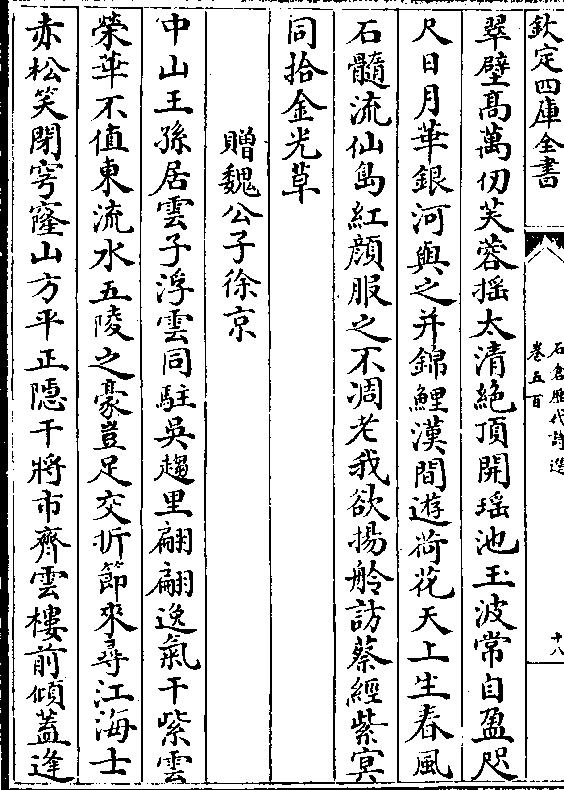 欽定四庫全書
石倉歷代詩選
卷五百
十八
翠壁髙萬仞芙蓉揺太清絶頂開瑶池玉波常自盈咫
尺日月華銀河與之并錦鯉漢間遊荷花天上生春風
石髓流仙島紅顔服之不凋老我欲揚舲訪蔡經紫㝠
同拾金光草
贈魏公子徐京
中山王孫居雲子浮雲同駐吳趨里翩翩逸氣干紫雲
榮華不值東流水五陵之豪豈足交折節來尋江海士
赤松笑閉穹窿山方平正隱干將市齊雲樓前傾蓋逢